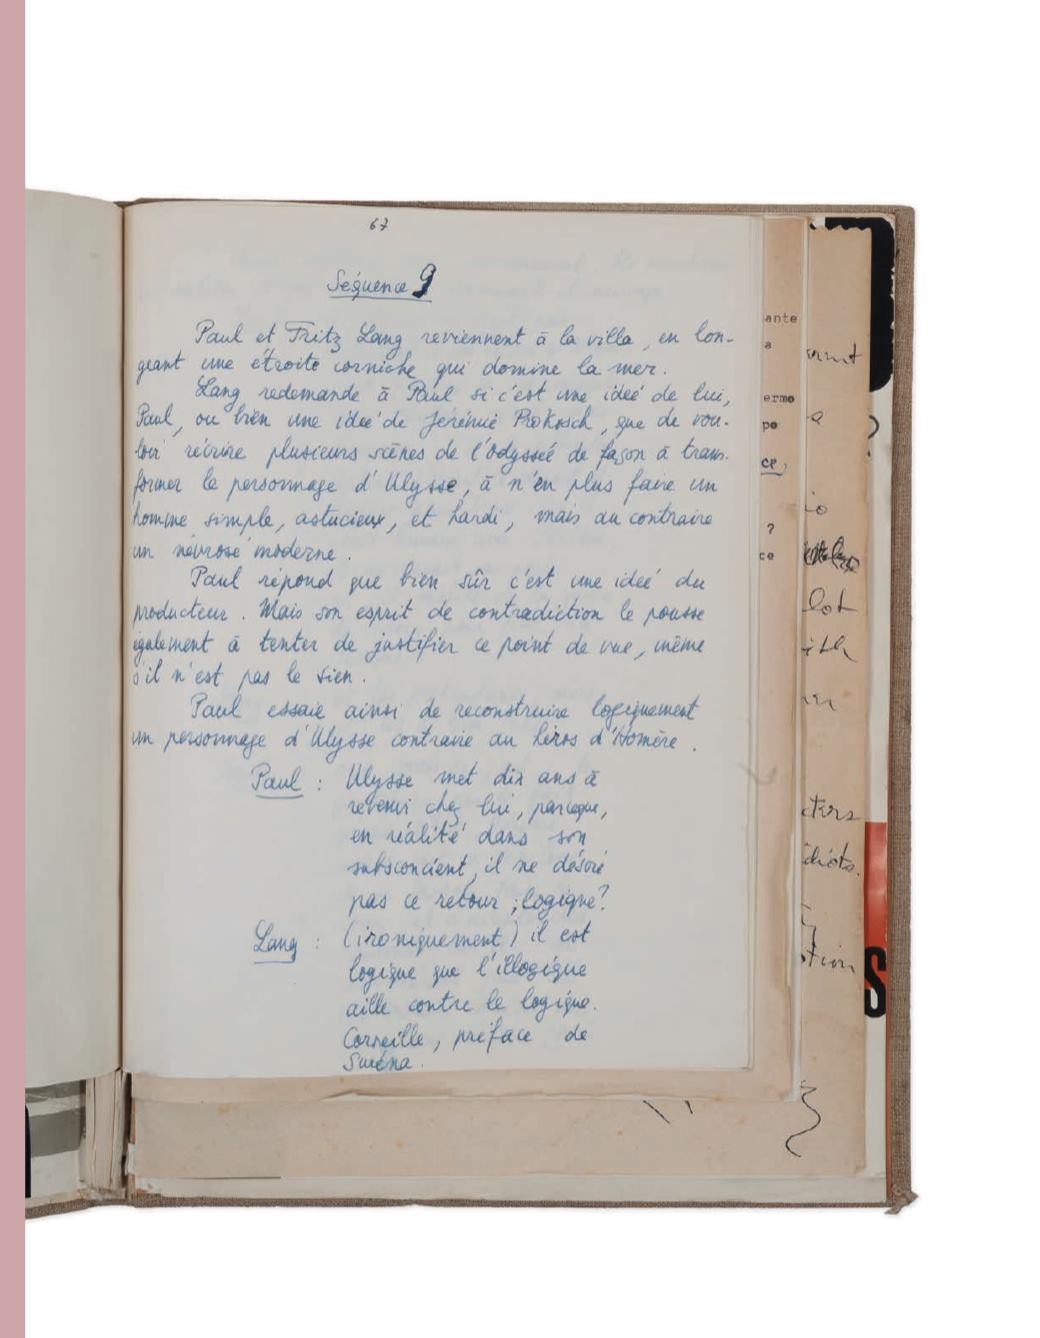 67
Séquence 9
Paul et Fritz Lang reviennent à la villa, en lon-
geant une étroite corniche qui domine la mer.
Lang redemande à Paul si c'est une idée de lui,
Paul, ou bien une idée de Jérémie Prokosch, que de vou-
loir réécrire plusieurs scènes de l'Odyssée de façon à trans-
former le personnage d'Ulysse, à n'en plus faire un
homme simple, astucieux, et hardi, mais au contraire
un névrosé moderne.
Paul répond que bien sûr c'est une idée du
producteur. Mais son esprit de contradiction le pousse
également à tenter de justifier ce point de vue, même
s'il n'est pas le sien.
Paul essaie ainsi de reconstruire logiquement
un personnage d'Ulysse contraire au héros d'Homère.
Paul : Ulysse met dix ans à
revenir chez lui, parceque,
en réalité dans son
subsconcient, il ne désire
pas ce retour ; logique?
Lang : (ironiquement) il est
logique que l'illogique
aille contre le logique.
Corneille, préface de
Suréna.
ante
a
ermo
po
ce,
?
ce
lot
ith
cters
idiots.
tion
S